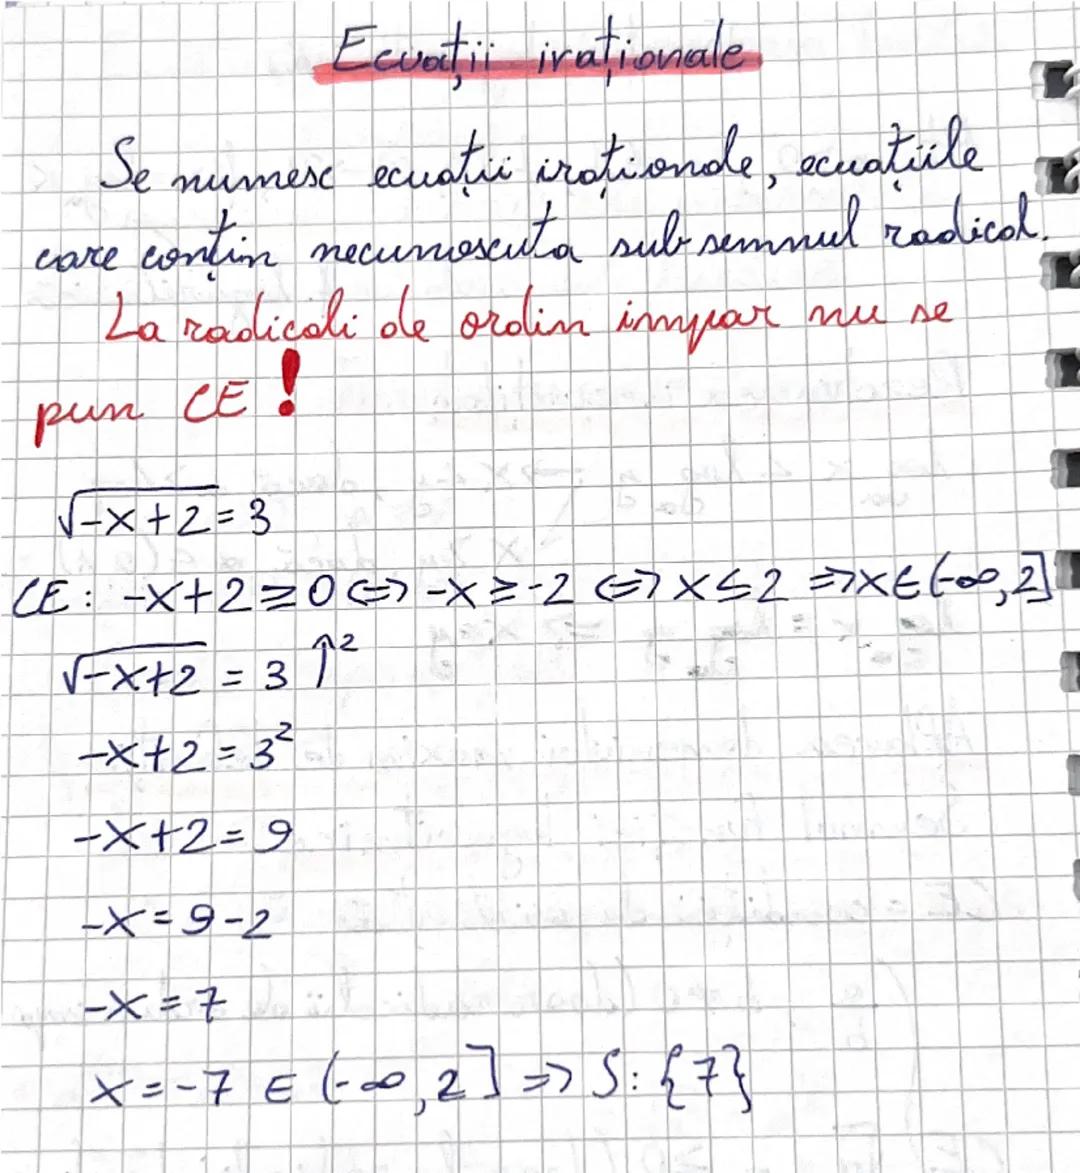 Ecuații iraționale
Se numesc ecuații iraționale, ecuațiile
care conțin necunoscuta sub semnul radical.
La radicali de ordin impar nu se
pun CE!
√-x+2 = 3
CE: -x+2 ≥ 0 ⇔ -x ≥ -2 ⇔ x ≤ 2 ⇒ x ∈ (-∞, 2]
√-x+2 = 3 ↑²
-x+2 = 3²
-x+2 = 9
-x = 9-2
-x = 7
x = -7 ∈ (-∞, 2] ⇒ S: {7}